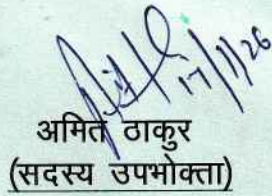 17/11/26
अमित ठाकुर
(सदस्य उपभोक्ता)